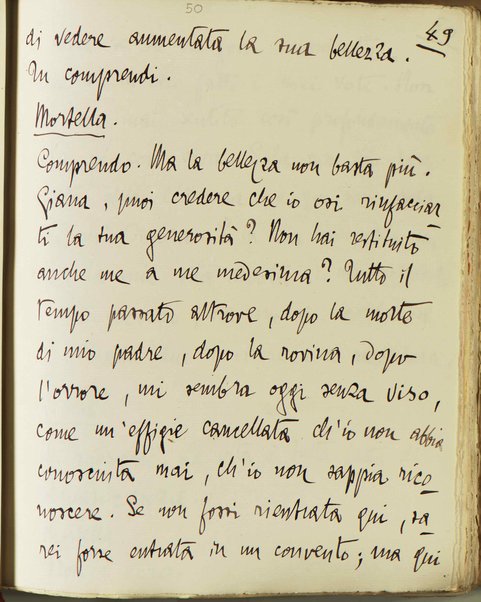 50
49
di vedere aumentata la sua bellezza.
Tu comprendi.
Mortella.
Comprendo. Ma la bellezza non basta più.
Giana, puoi credere che io osi rinfacciar
ti la tua generosità? Non hai restituito
anche me a me medesima? Tutto il
tempo passato altrove, dopo la morte
di mio padre, dopo la rovina, dopo
l'orrore, mi sembra oggi senza viso,
come un'effigie cancellata ch'io non abbia
conosciuta mai, ch'io non sappia rico
noscere. Se non fossi rientrata qui, sa
rei forse entrata in un convento; ma qui